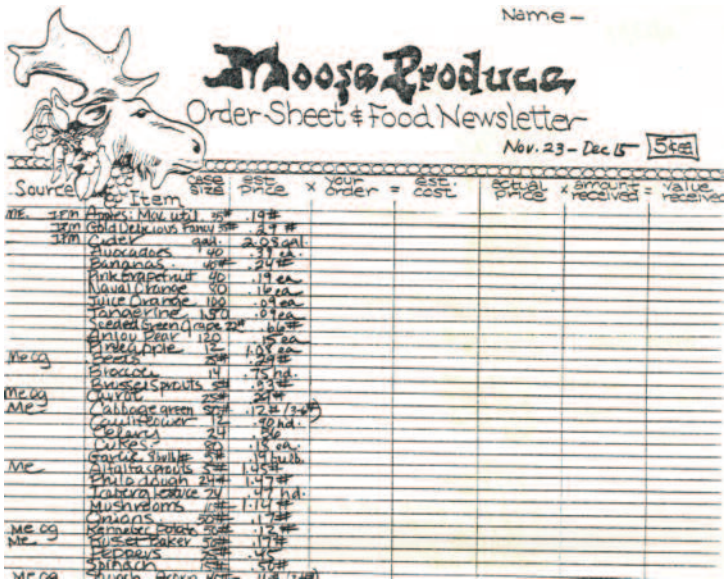 Name-
Moose Produce
Order-Sheet & Food Newsletter
Nov. 23 - Dec 15 5¢ea
Source & Item case size est. price × your order = est. cost actual price × amount received = value received
ME. IPM Apples: Mac util. 35# .19#
IPM Gold Delicious Fancy 35# .29#
IPM Cider gal. 2.08 gal.
Avocadoes 40 .39 ea.
Bananas 40# .24#
Pink Grapefruit 40 .19 ea
Naval Orange 80 .16 ea
Juice Orange 100 .09 ea
Tangerine 150 .09 ea
Seeded Green Grape 22# .66#
Anjou Pear 120 .15 ea
Pineapple 12 1.05 ea
Me og Beets 25# .29#
Broccoli 14 .75 hd.
Brussel Sprouts 5# .93#
Me og Carrot 25# .29#
Me- Cabbage green 50# .12#
Cauliflower .90 hd.
Celery 24 .56
Cukes 80 .15 ea.
Garlic 5# .19 bulb.
Me Alfalfa sprouts 5# 1.45#
Philo dough 24# 1.47#
Iceberg lettuce 24 .47 hd.
Mushrooms 10# 1.14#
Onions 50# .17#
Me og Kennebec Potato 50# .12#
Me Russet Baker 50# .17#
Peppers 25# .45
Spinach .50#
Me og Squash Acorn